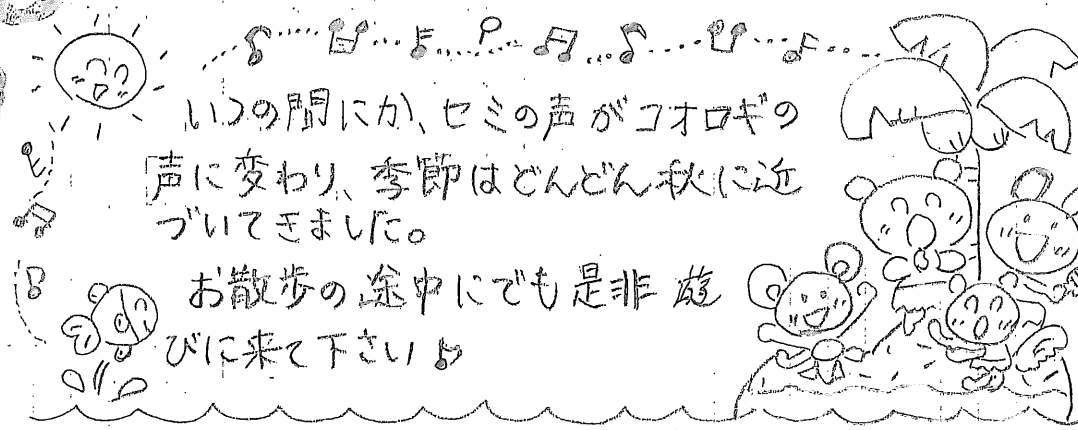 いつの間にか、セミの声がコオロギの
声に変わり、季節はどんどん秋に近
づいてきました。
お散歩の途中にでも是非 遊
びに来て下さい♪